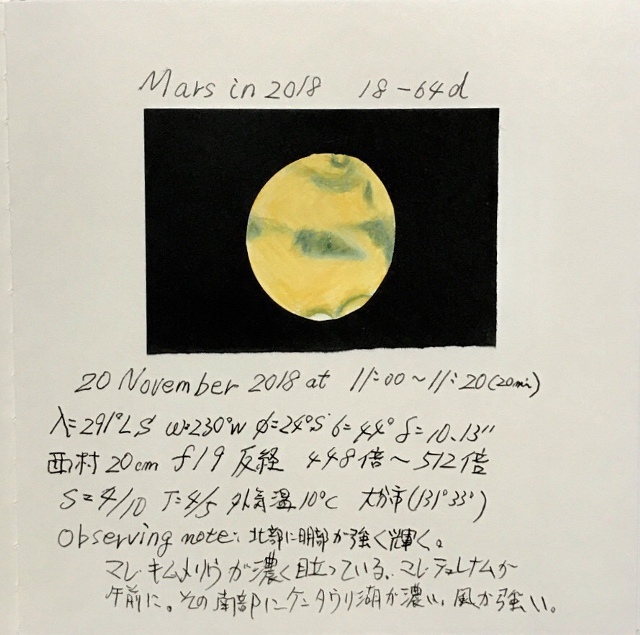 Mars in 2018 18-64d
20 November 2018 at 11:00～11:20(20min)
λ=291°LS ω=230°W φ=24°S ι=44° δ=10.13"
西村 20cm f19 反経 448倍～512倍
S=4/10 T=4/5 外気温10°C 大分市(131°33')
Observing note: 北部に明部が強く輝く。
マレ・キムメリウムが濃く目立っている。マレ・チュレナムが
午前に。その南部にケンタウリ湖が濃い。風が強い。